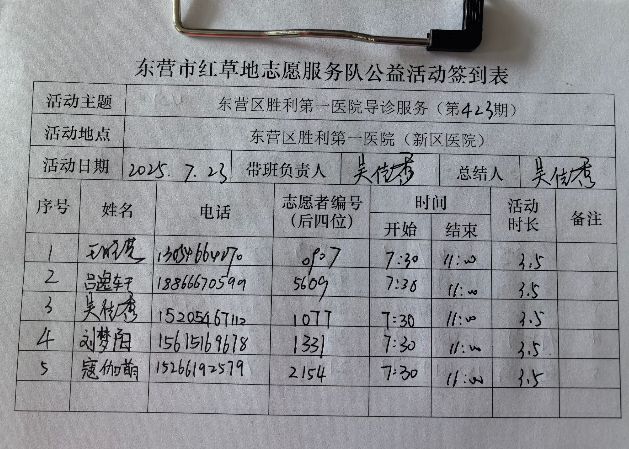 东营市红草地志愿服务队公益活动签到表
活动主题 东营区胜利第一医院导诊服务（第423期）
活动地点 东营区胜利第一医院（新区医院）
活动日期 2025. 7. 23 带班负责人 吴佳秀 总结人 吴佳秀
序号 姓名 电话 志愿者编号（后四位） 时间 开始 结束 活动时长 备注
1 13054664070 0907 7:30 11:00 3.5
2 吕逸轩 18866670599 5609 7:30 11:00 3.5
3 吴佳秀 15205467112 1077 7:30 11:00 3.5
4 刘梦阳 15615169678 1331 7:30 11:00 3.5
5 寇伽萌 15266192579 2154 7:30 11:00 3.5